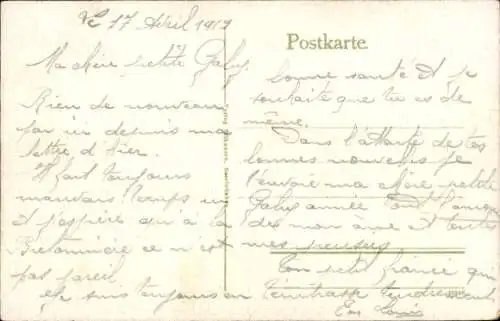 Le 17 Avril 1919
Postkarte.
Ma chère petite Gaby.
Rien de nouveau
par ici depuis ma
lettre d'hier.
Il fait toujours
mauvais temps
et j'espère qu'à la
ce n'est
pas pareil.
Je suis toujours en
bonne santé et je
souhaite que tu es de
même.
Dans l'attente de tes
bonnes nouvelles je
t'envoie ma chère petite
Gaby aimée tout l'amour
de mon âme et toutes
mes pensées
Ton petit fiancé qui
t'embrasse tendrement
Ton Louis